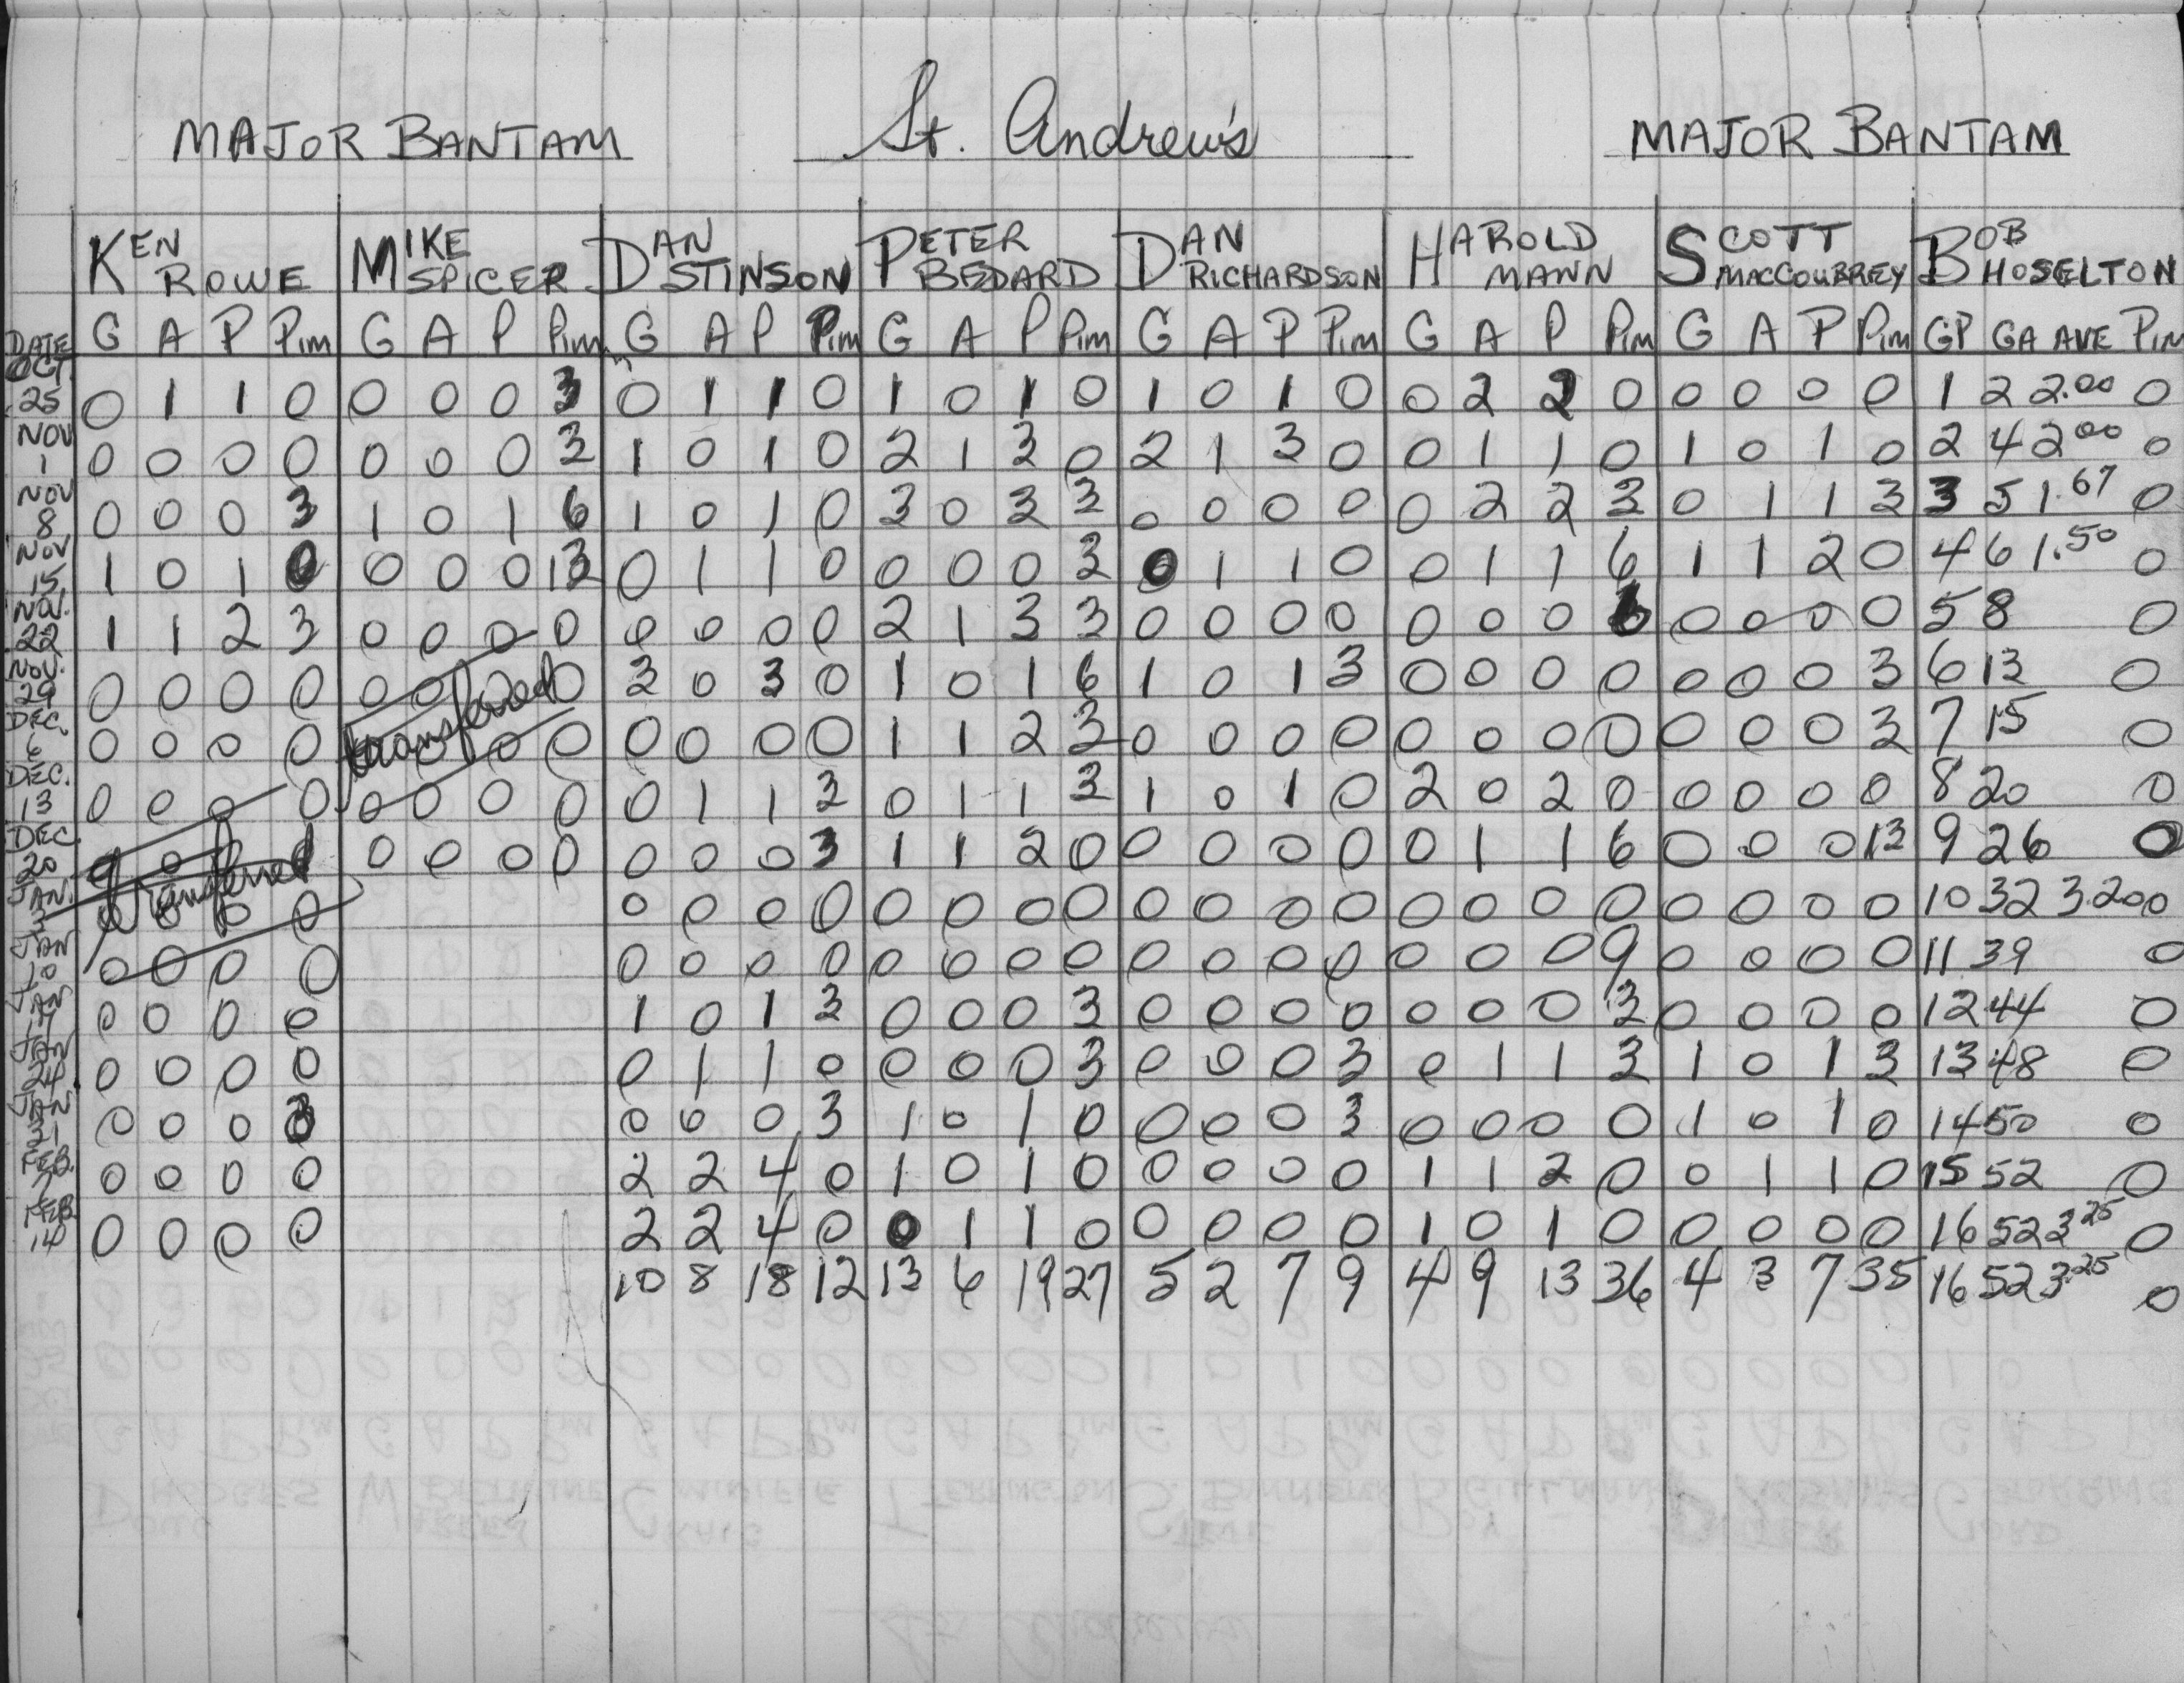 MAJOR BANTAM St. Andrew's MAJOR BANTAM
KEN ROWE MIKE SPICER DAN STINSON PETER BEDARD DAN RICHARDSON HAROLD MANN SCOTT MACCOUBREY BOB HOSELTON
DATE G A P Pim G A P Pim G A P Pim G A P Pim G A P Pim G A P Pim G A P Pim GP GA AVE Pim
OCT. 25 0 1 1 0 0 0 0 3 0 1 1 0 1 0 1 0 1 0 1 0 0 2 2 0 0 0 0 0 1 2 2.00 0
NOV 1 0 0 0 0 0 0 0 3 1 0 1 0 2 1 3 0 2 1 3 0 0 1 1 0 1 0 1 0 2 4 2.00 0
NOV 8 0 0 0 3 1 0 1 6 1 0 1 0 3 0 3 3 0 0 0 0 0 2 2 3 0 1 1 3 3 5 1.67 0
NOV 15 1 0 1 0 0 0 0 13 0 1 1 0 0 0 0 3 0 1 1 0 0 1 1 6 1 1 2 0 4 6 1.50 0
NOV. 22 1 1 2 3 0 0 0 0 0 0 0 0 2 1 3 3 0 0 0 0 0 0 0 0 0 0 0 5 8 0
NOV. 29 0 0 0 0 0 0 0 0 3 0 3 0 1 0 1 6 1 0 1 3 0 0 0 0 0 0 0 3 6 13 0
transferred
DEC. 6 0 0 0 0 0 0 0 0 0 0 0 1 1 2 3 0 0 0 0 0 0 0 0 0 0 0 3 7 15 0
DEC. 13 0 0 0 0 0 0 0 0 0 1 1 3 0 1 1 3 1 0 1 0 2 0 2 0 0 0 0 0 8 20 0
DEC. 20 0 0 0 0 0 0 0 0 3 1 1 2 0 0 0 0 0 0 1 1 6 0 0 0 13 9 26 0
transferred
JAN. 3 0 0 0 0 0 0 0 0 0 0 0 0 0 0 0 0 0 0 0 0 0 0 0 0 10 32 3.20 0
JAN 10 0 0 0 0 0 0 0 0 0 0 0 0 0 0 0 0 0 0 0 9 0 0 0 0 11 39 0
JAN 17 0 0 0 0 1 0 1 3 0 0 0 3 0 0 0 0 0 0 0 3 0 0 0 0 12 44 0
JAN 24 0 0 0 0 0 1 1 0 0 0 0 3 0 0 0 3 0 1 1 3 1 0 1 3 13 48 0
JAN 31 0 0 0 3 0 0 0 3 1 0 1 0 0 0 0 3 0 0 0 0 1 0 1 0 14 50 0
FEB. 7 0 0 0 0 2 2 4 0 1 0 1 0 0 0 0 0 1 1 2 0 0 1 1 0 15 52 0
FEB. 14 0 0 0 0 2 2 4 0 0 1 1 0 0 0 0 0 1 0 1 0 0 0 0 0 16 52 3.25 0
10 8 18 12 13 6 19 27 5 2 7 9 4 9 13 36 4 3 7 35 16 52 3.25 0